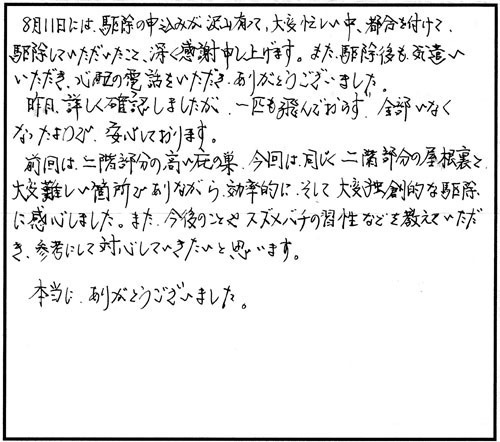 8月11日には、駆除の申込みが沢山有って、大変忙しい中、都合を付けて、
駆除していただいたこと、深く感謝申し上げます。また、駆除後も気遣い
いただき、心配の電話をいただき、ありがとうございました。
昨日、詳しく確認しましたが、一匹も飛んでおらず、全部いなく
なったようで、安心しております。
前回は、二階部分の高い庇の巣、今回は、同じく二階部分の屋根裏と
大変難しい箇所でありながら、効率的に、そして大変独創的な駆除
に感心しました。また、今後のことやスズメバチの習性などを教えていただ
き、参考にして対応していきたいと思います。
本当に、ありがとうございました。